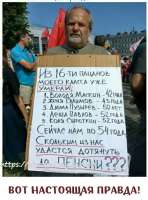 ИЗ 16-ТИ ПАЦАНОВ
МОЕГО КЛАССА УЖЕ
УМЕРЛИ:
1. ВОЛОДЯ МАЛКИН - 42 ГОДА
2. - 45 ГОДА
3. ДИМА ПУЗЫРЁВ - 50 ЛЕТ
4. ЛЕША ПАВЛОВ - 52 ГОДА
5. КОЛЯ СИРОТКИН - 52 ГОДА
СЕЙЧАС НАМ ПО 54 ГОДА
СКОЛЬКИМ ИЗ НАС
УДАСТСЯ ДОТЯНУТЬ
ДО ПЕНСИИ???
https:/
ВОТ НАСТОЯЩАЯ ПРАВДА!